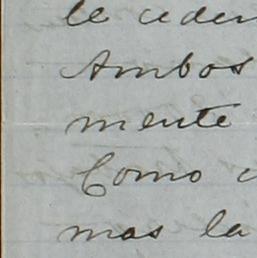 le ceder
Ambos
mente
Como
mas la